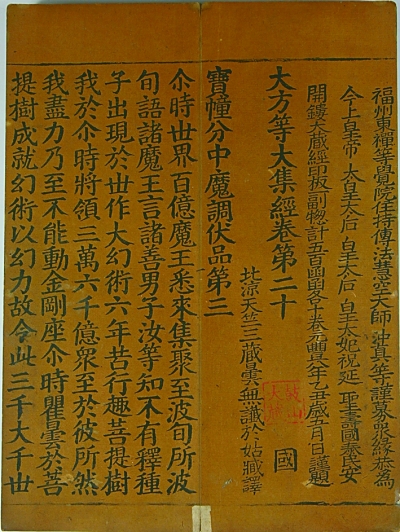 福州東禪等覺院住持傳法慧空大師沖真等謹募衆緣恭為
今上皇帝太皇太后皇太后皇太妃祝延聖壽國泰民安
開鏤大藏經印板一副惣計五百函函各十卷元豐八年乙丑歲五月日謹題
大方等大集經卷第二十 國
北涼天竺三藏曇無讖於姑臧譯
寶幢分中魔調伏品第三
尒時世界百億魔王悉來集聚至波旬所波
旬語諸魔王言諸善男子汝等知不有釋種
子出現於世作大幻術六年苦行趣菩提樹
我於尒時將領三萬六千億衆至於彼所然
我盡力乃至不能動金剛座尒時瞿曇於菩
提樹成就幻術以幻力故令此三千大千世